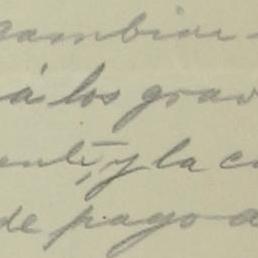 cambiar
á los grav
ente, y la c
de pago a